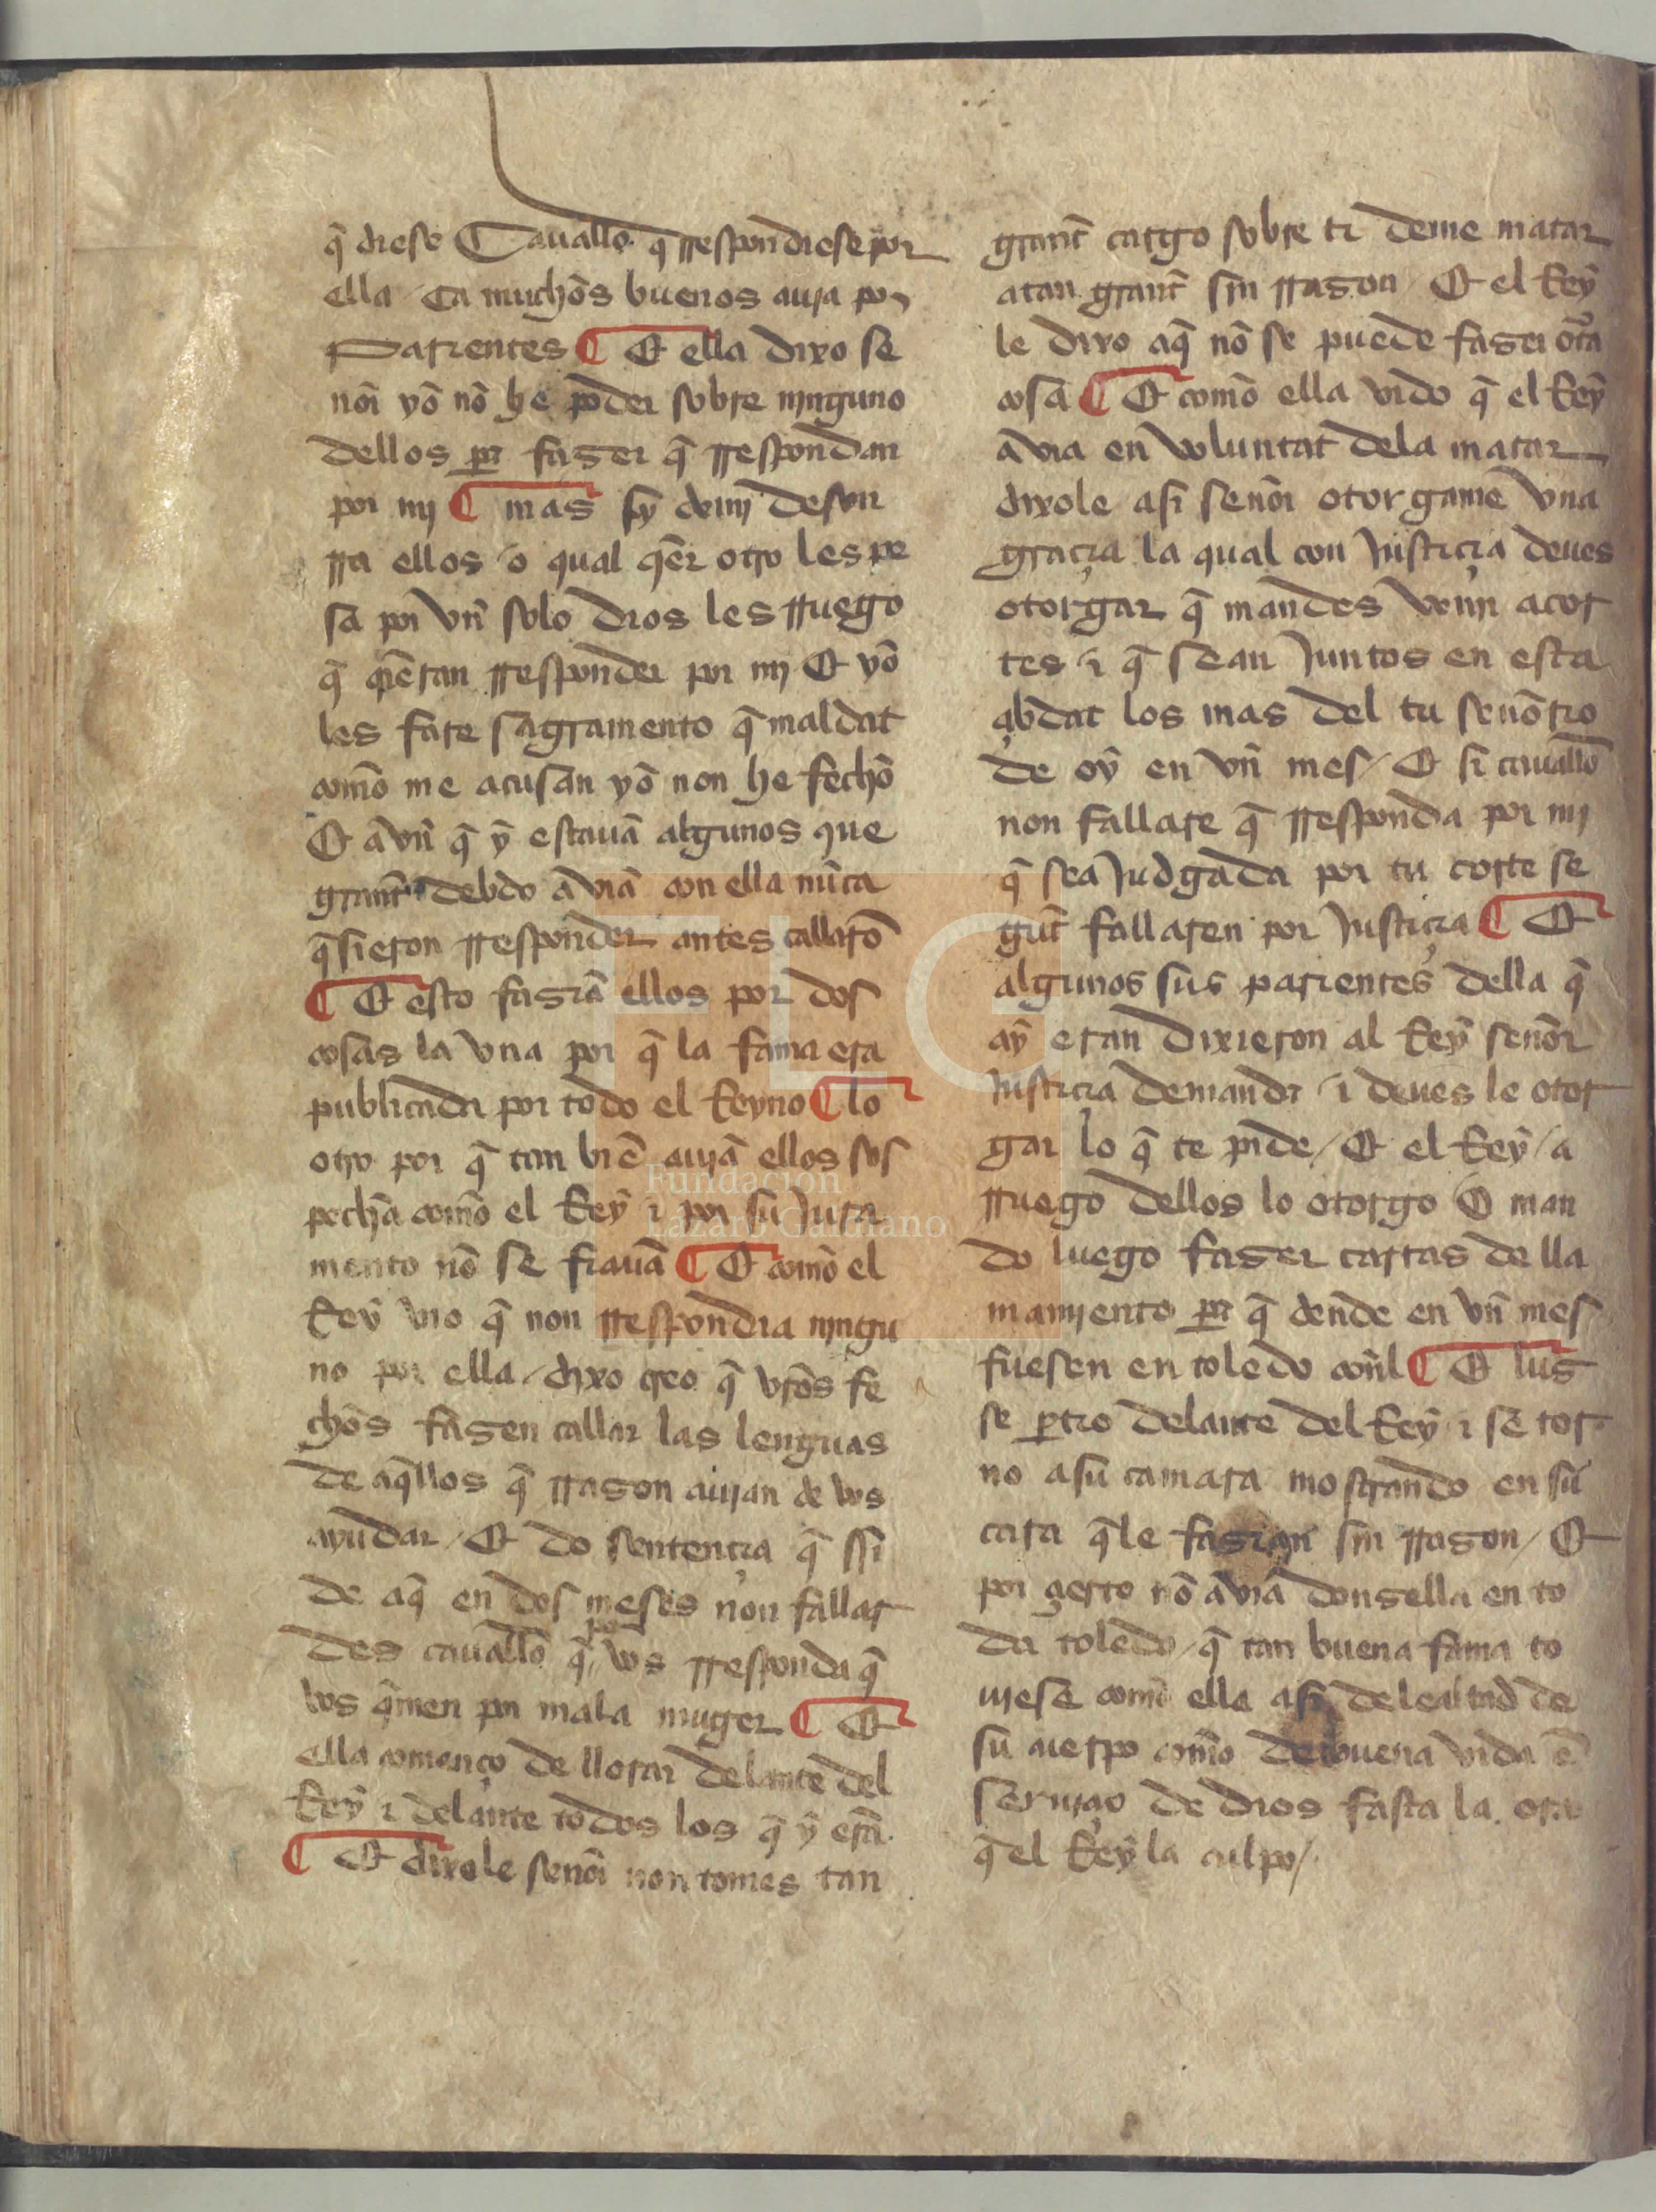 q̃ diese Cauallo q̃ rrespondiese por
ella ca muchõs buenos auja por
Parientes ¶ Et ella dixo se
nõr yõ nõ he poder sobre njnguno
dellos pa faser q̃ rrespondan
por mj ¶ mas sy demj
rra ellos o qual q̃er otro les pe
sa por vn̄ solo dios les rruego
q̃ q̃eran rresponder por mj Et yõ
les fare sagramento q̃ maldat
comõ me acusan yõ non he fechõ
Et avn̄ q̃ ȳ estauã algunos que
grant̄ debdo avıã con ella nũca
q̃sieron rresponder antes callarõ
¶ Et esto fasiã ellos por dos
cosas la vna por q̃ la fama era
publicada por todo el Reyno ¶ lo
otro por q̃ tan biẽ aujã ellos sos
pechã comõ el Reȳ ⁊ por su Jura
mento nõ se fiauã ¶ Et comõ el
Reȳ vio q̃ non rrespondia njngu
no por ella / dixo creo q̃ vr̃os fe
chõs fasen callar las lenguas
de aq̃llos q̃ rrason aujan de vos
ayudar / Et do sentençia q̃ ssi
de aq̃ en dos meses non fallar
des cauallõ q̃ por vos rresponda q̃
vos q̃men por mala muger ¶ Et
ella començo de llorar delante del
Reȳ ⁊ delante todos los q̃ ȳ erã
¶ Et dixole senõr non tomes tan
grant̄ cargo sobre ti deme matar
atan grant̄ sin rrason / Et el Reȳ
le dixo aq̃ nõ se puede faser otra
cosa ¶ Et comõ ella vido q̃ el Reȳ
avia en voluntat dela matar
dixole asi senõr otorgame vna
graçia la qual con Justiçia deues
otorgar q̃ mandes venjr acor
tes ⁊ q̃ sean Juntos en esta
çibdat los mas del tu senõrio
de oȳ en vn̄ mes / Et si cauallõ
non fallare q̃ rresponda por mj
q̃ sea Judgada por tu corte se
gut̄ fallaren por Justiçia ¶ Et
algunos sus parientes della q̃
aȳ eran dixieron al Reȳ senõr
Justiçia demanda ⁊ deues le otor
gar lo q̃ te pide / Et el Reȳ / a
rruego dellos lo otorgo Et man
do luego faser cartas de lla
mamjento pa q̃ dende en vn̄ mes
fuesen en toledo con̄l ¶ Et lus
se ptio delante del Reȳ ⁊ se tor
no asu camara mostrando en su
cara q̃ le fasian sin rrason / Et
por çierto nõ aviã donsella en to
da toledo / q̃ tan buena fama to
uiese comõ ella asi de lealtad de
su cuerpo comõ de buena vida ẽ
serujçio de dios fasta la ora
q̃ el Reȳ la culpo /
Fundación
Lázaro Galdiano
FLG